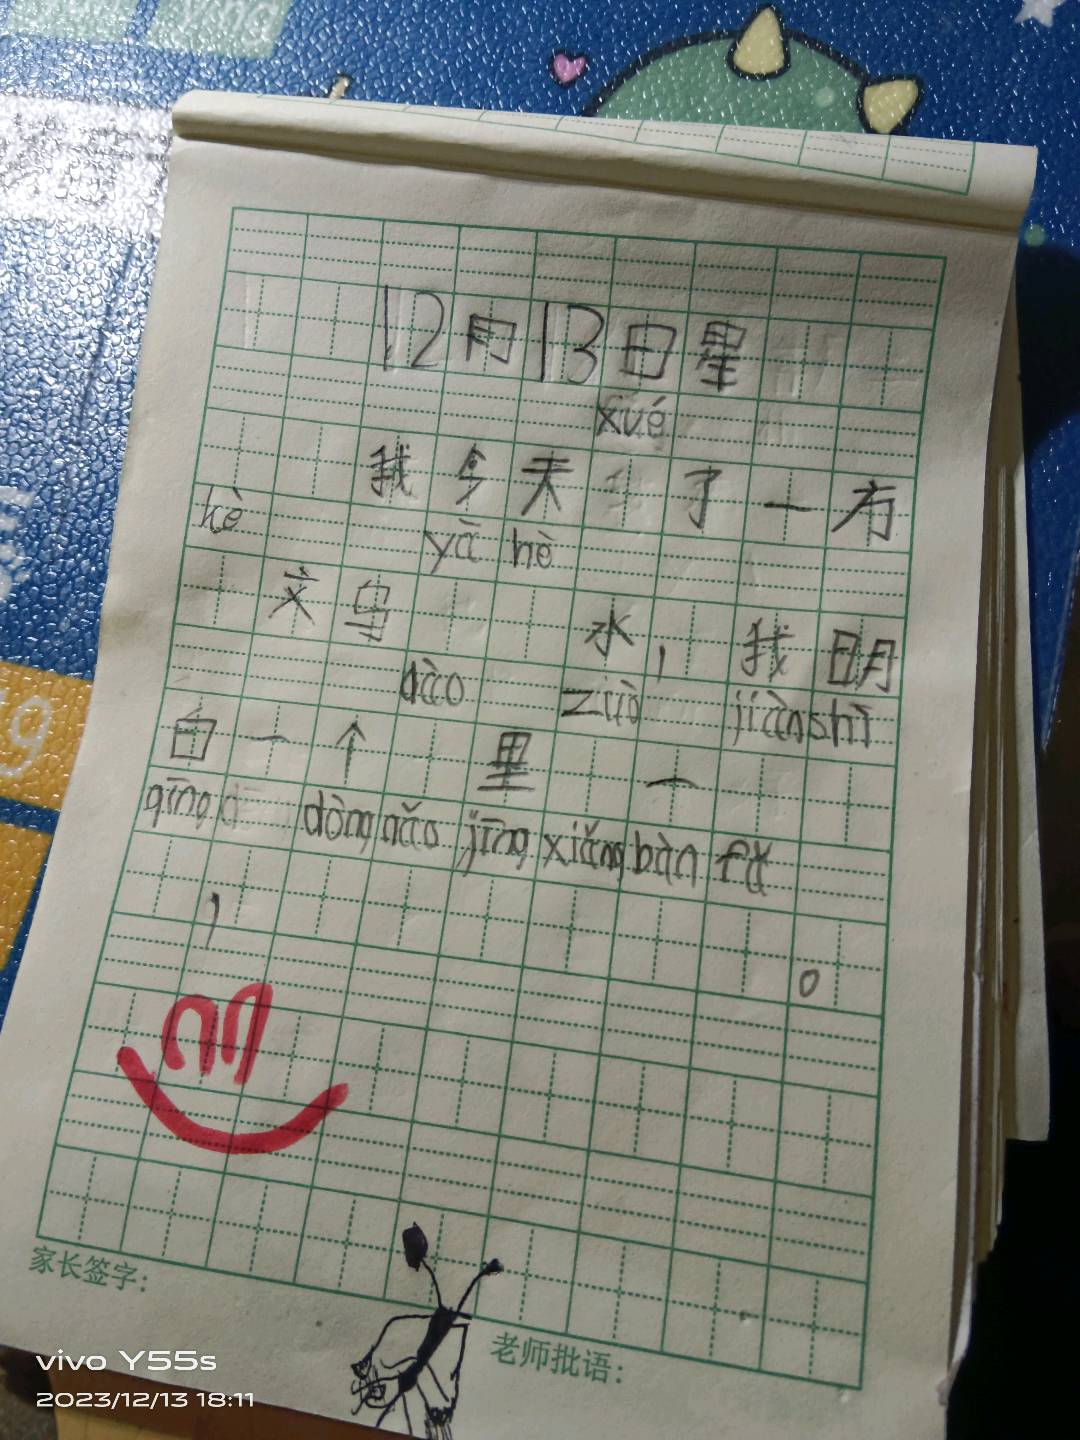 12月13日星
xué
我今天了一方
kè yā hè
文乌水，我明
dào zuò jiàn shì
白一个里一
qīng dòng nǎo jīng xiǎng bàn fǎ
，。
家长签字：
老师批语：
vivo Y55s
2023/12/13 18:11